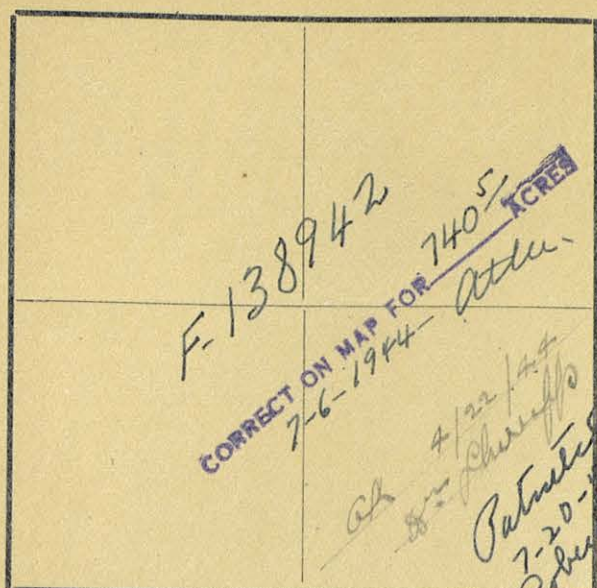 F-138942
CORRECT ON MAP FOR 740 5/ ACRES
7-6-1944-
Ok 4/22/44
Patented
7-20-